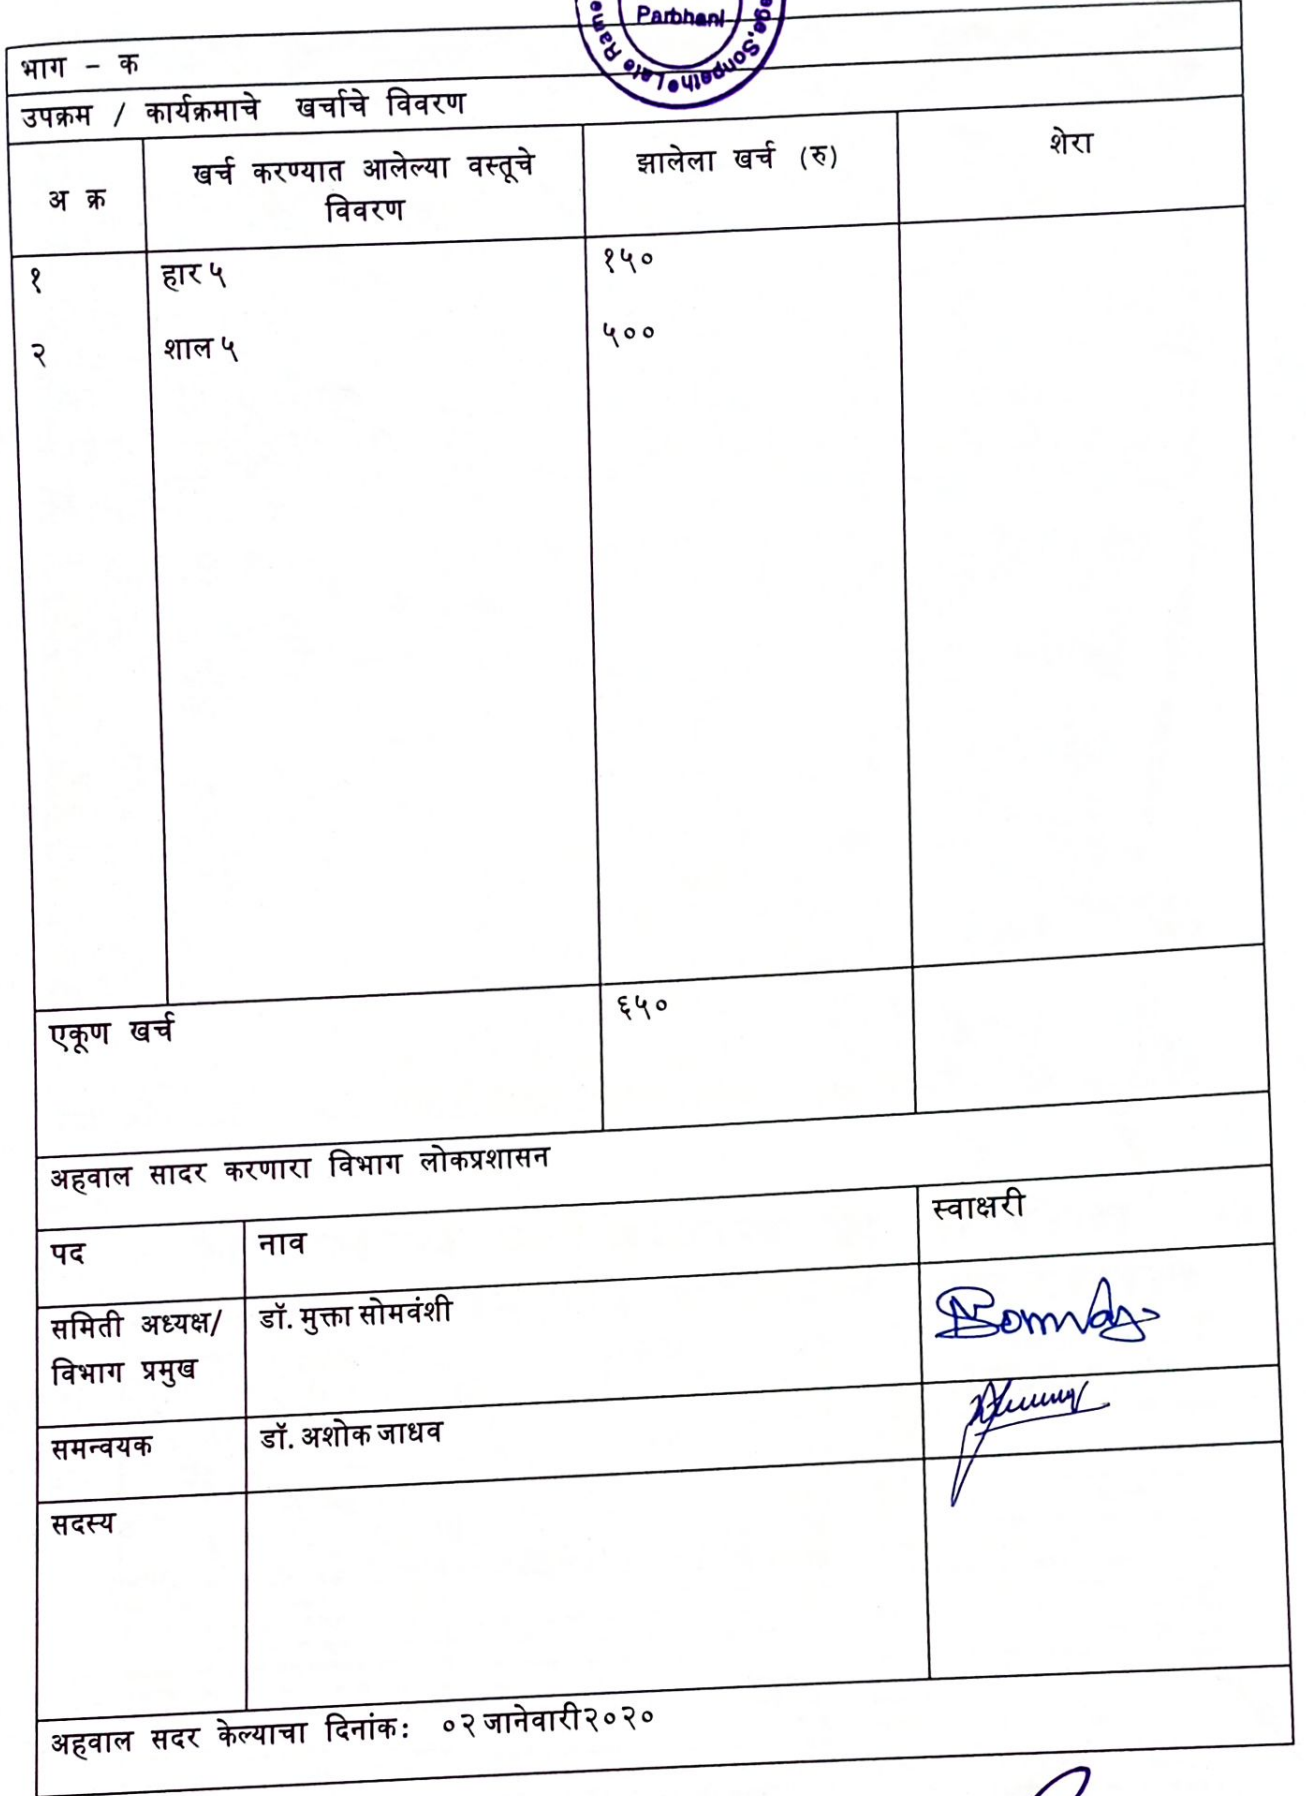 Parbhani
ege, Sonpeth
Late Rame
भाग - क
उपक्रम / कार्यक्रमाचे खर्चाचे विवरण
अ क्र
खर्च करण्यात आलेल्या वस्तूचे
विवरण
झालेला खर्च (रु)
शेरा
१ हार ५ १५०
२ शाल ५ ५००
एकूण खर्च ६५०
अहवाल सादर करणारा विभाग लोकप्रशासन
पद नाव स्वाक्षरी
समिती अध्यक्ष/ डॉ. मुक्ता सोमवंशी
विभाग प्रमुख
समन्वयक डॉ. अशोक जाधव
सदस्य
अहवाल सदर केल्याचा दिनांक: ०२ जानेवारी२०२०